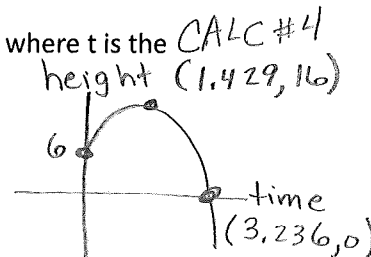 where t is the CALC #4
height (1.429, 16)
6
time
(3.236, 0)